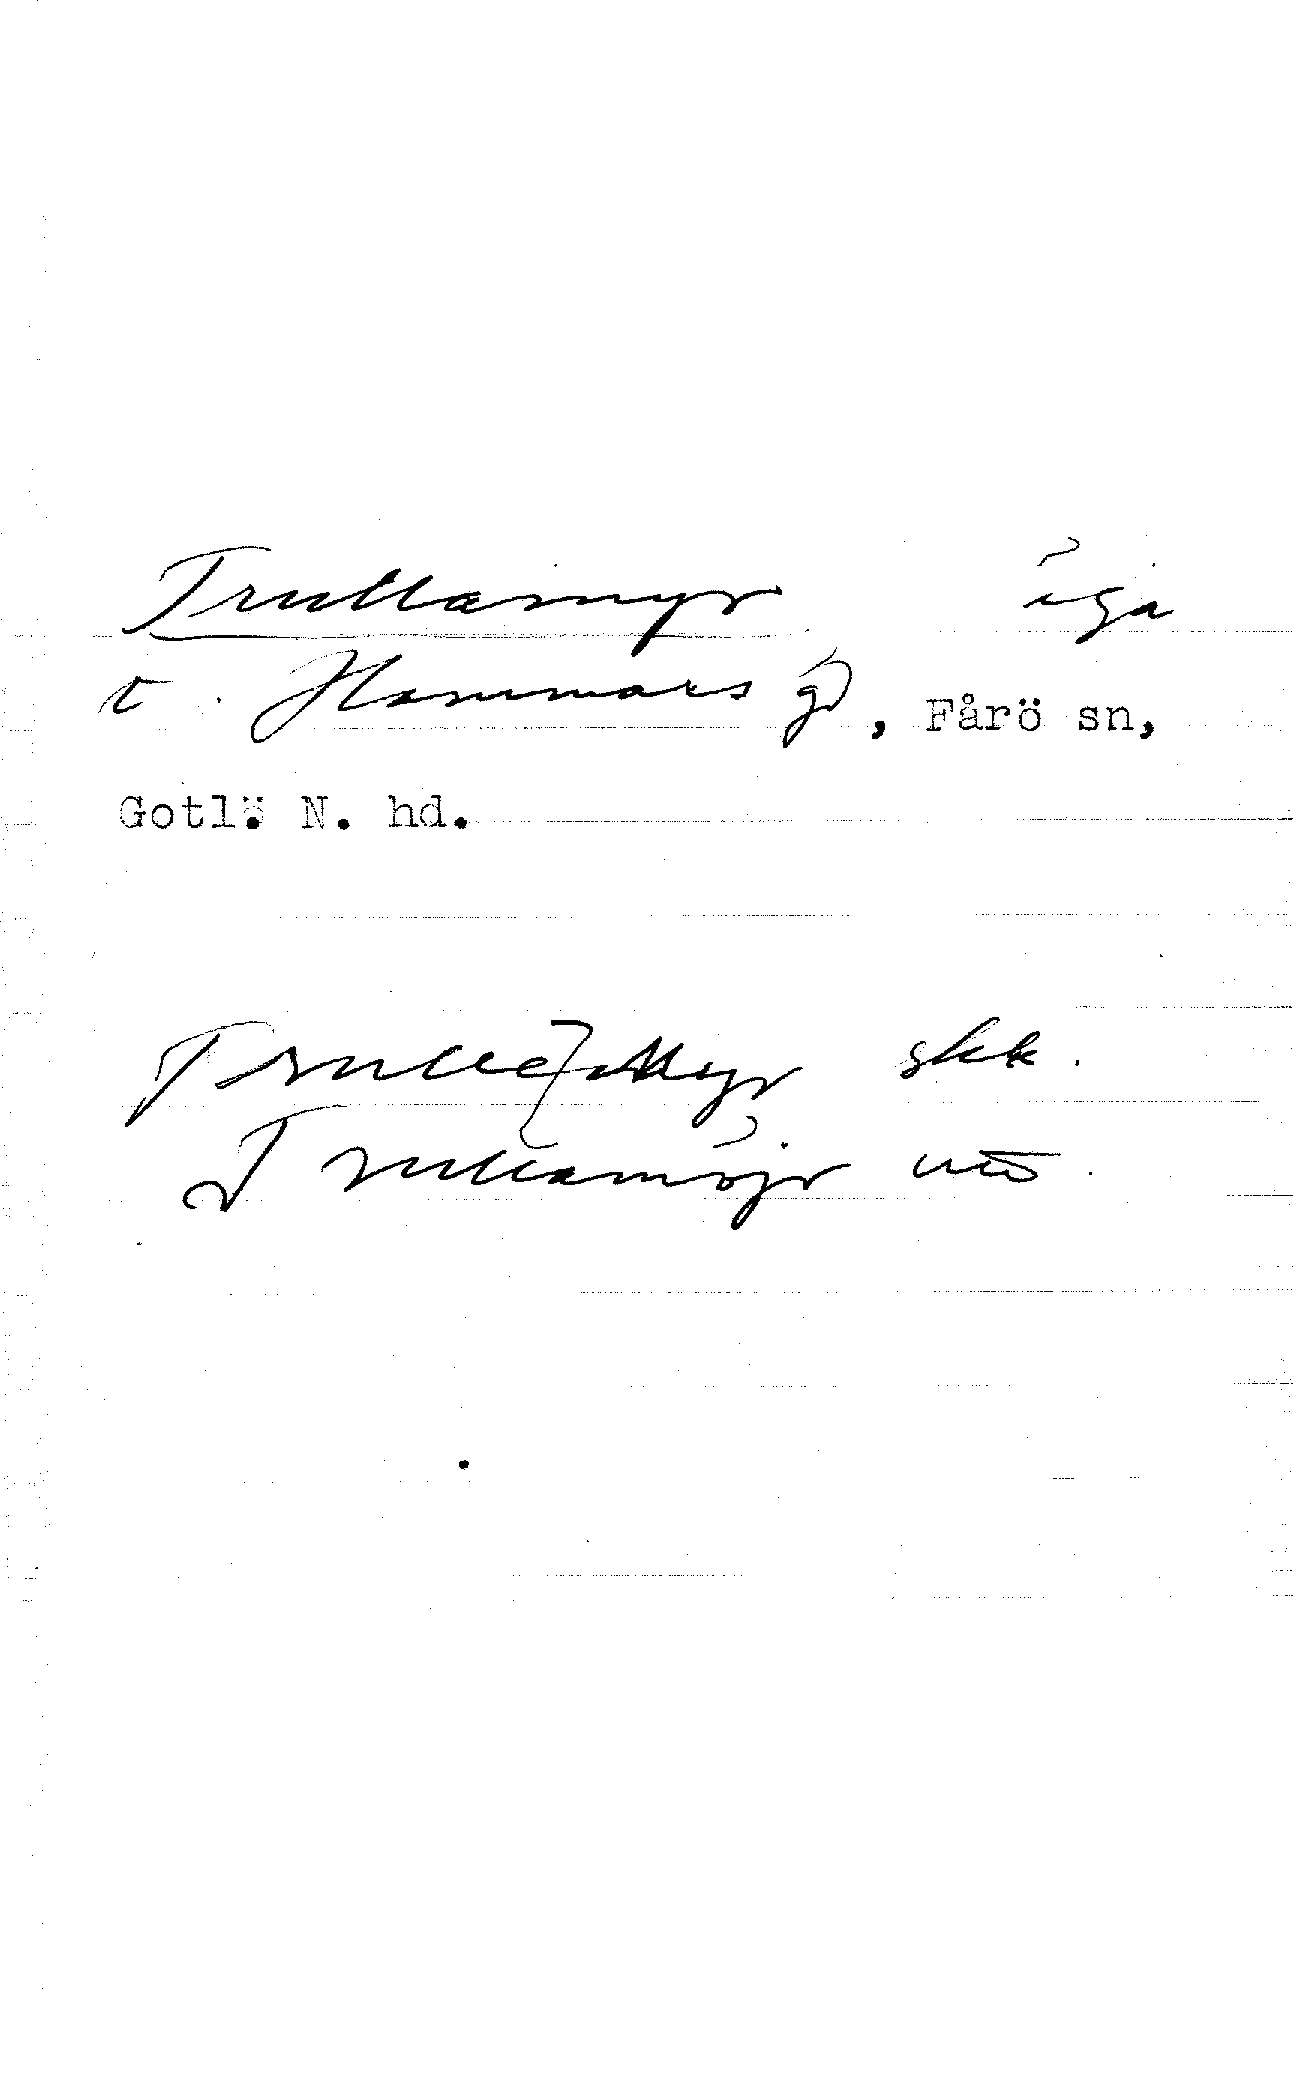 Trullamyr äga
t. Hammars gd, Fårö sn,
Gotl. N. hd.
Trulle Myr skk.
Trullamöjr utt.